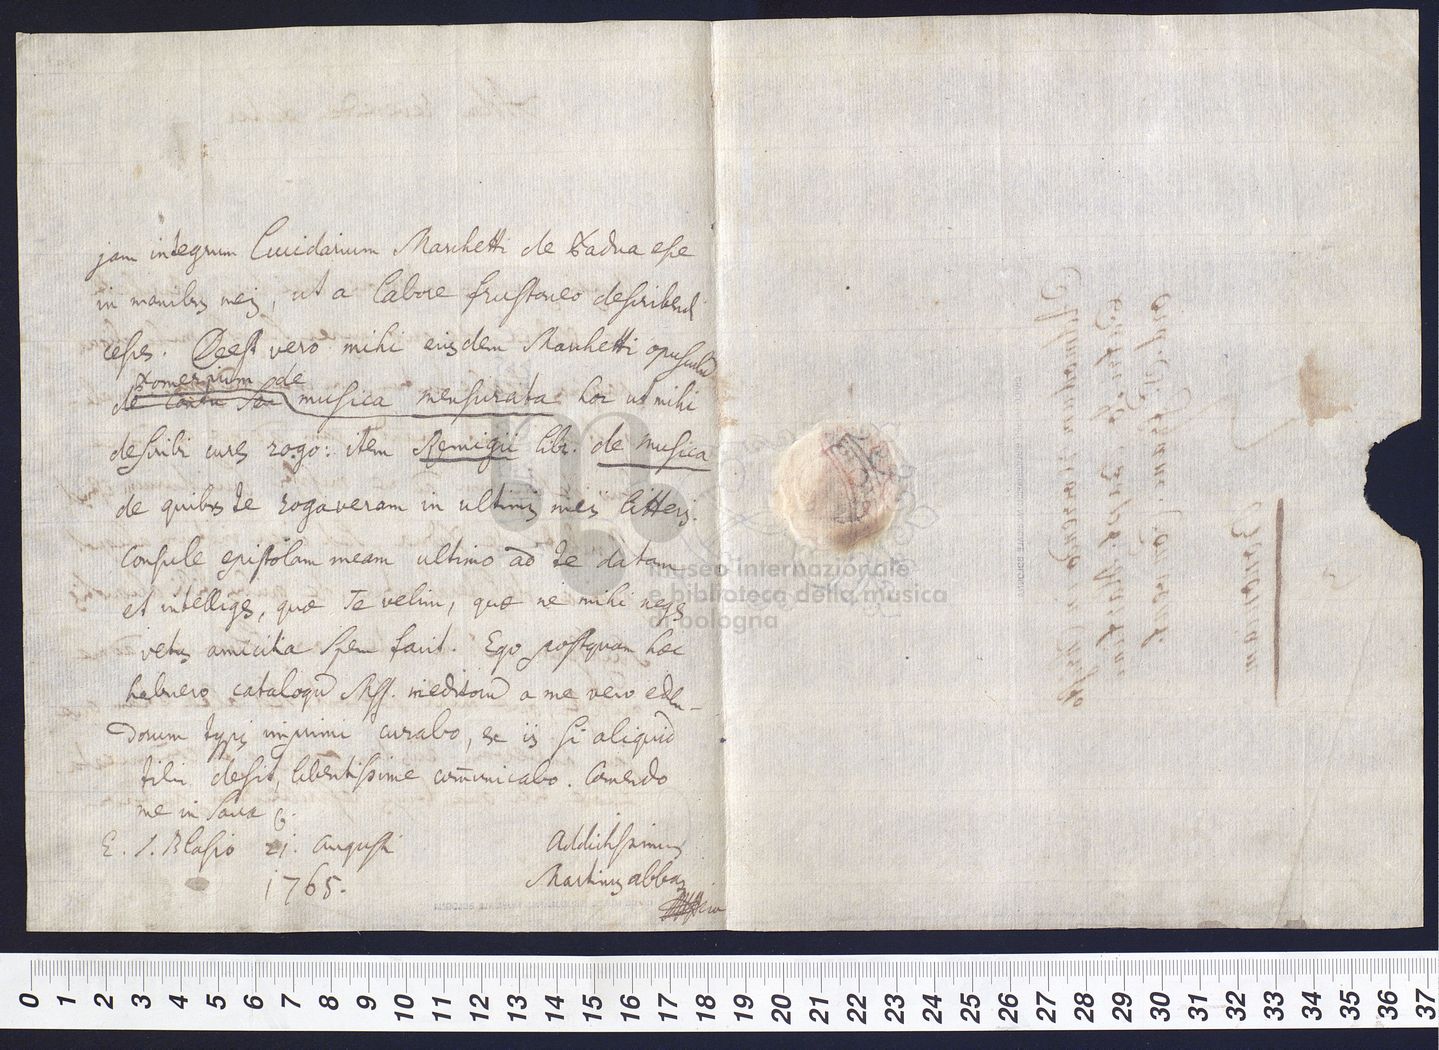 jam integrum Lucidarium Marchetti de Padua esse
in manibus meis, ut a labore frustraneo describendi
cesses. Deest vero mihi eiusdem Marchetti opusculum
pomerium de
de Cantu seu musica mensurata hoc ut mihi
describi cures rogo: item Remigii lib. de musica
de quibus te rogaveram in ultimis meis litteris.
Consule epistolam meam ultimo ad te datam
et intelliges, quæ te velim, quæ ne mihi neges
vetus amicitia spem facit. Ego postquam hæc
habuero catalogum Mss. ineditorum a me vero eden-
dorum typis imprimi curabo, et iis si aliquid
tibi desit, libentissime com̄unicabo. Com̄endo
me in Sacra
E. S. Blasio 21. augusti
1765.
addictissimus
Martinus abbas
museo internazionale
e biblioteca della musica
di bologna
0 1 2 3 4 5 6 7 8 9 10 11 12 13 14 15 16 17 18 19 20 21 22 23 24 25 26 27 28 29 30 31 32 33 34 35 36 37